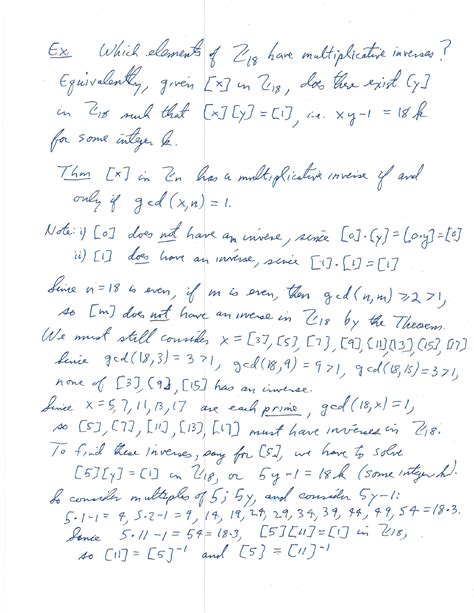 Ex. Which elements of Z₁₈ have multiplicative inverses?
Equivalently, given [x] in Z₁₈, does there exist [y]
in Z₁₈ such that [x][y] = [1], i.e. xy-1 = 18k
for some integer k.
Thm [x] in Zn has a multiplicative inverse if and
only if gcd(x,n) = 1.
Note: i) [0] does not have an inverse, since [0]·[y] = [0·y] = [0]
ii) [1] does have an inverse, since [1]·[1] = [1]
Since n=18 is even, if m is even, then gcd(n,m) ≥ 2 > 1,
so [m] does not have an inverse in Z₁₈ by the Theorem.
We must still consider x = [3], [5], [7], [9], [11], [13], [15], [17].
Since gcd(18,3) = 3 > 1, gcd(18,9) = 9 > 1, gcd(18,15) = 3 > 1,
none of [3], [9], [15] has an inverse.
Since x = 5, 7, 11, 13, 17 are each prime, gcd(18,x) = 1,
so [5], [7], [11], [13], [17] must have inverses in Z₁₈.
To find these inverses, say for [5], we have to solve
[5][y] = [1] in Z₁₈, or 5y-1 = 18k (some integer k).
So consider multiples of 5; 5y, and consider 5y-1:
5·1-1 = 4, 5·2-1 = 9, 14, 19, 24, 29, 34, 39, 44, 49, 54 = 18·3.
Since 5·11-1 = 54 = 18·3, [5][11] = [1] in Z₁₈,
so [11] = [5]⁻¹ and [5] = [11]⁻¹